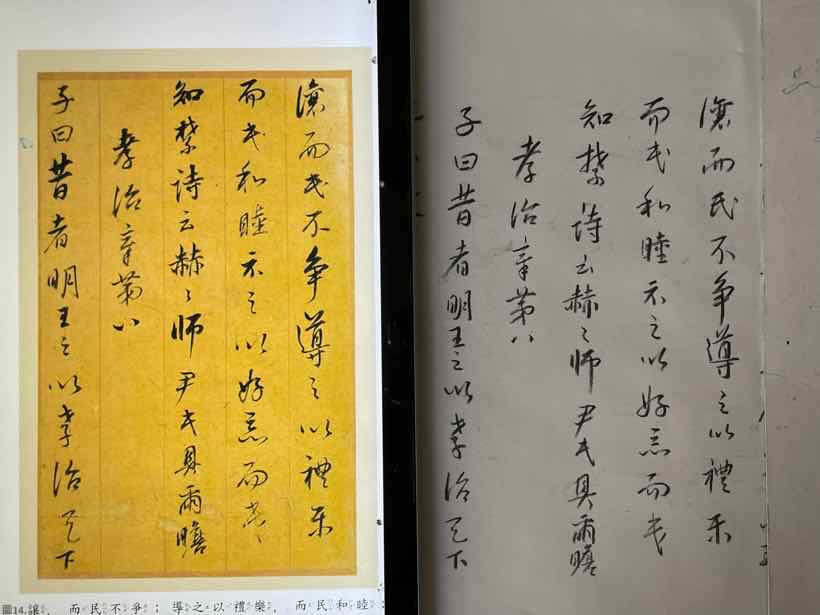 讓而民不争導之以禮樂
而民和睦示之以好惡而民
知禁詩云赫〻師尹民具爾瞻
孝治章第八
子曰昔者明王之以孝治天下
圖14.讓、而民不爭；導之以禮樂、而民和睦；
讓而民不争導之以禮樂
而民和睦示之以好惡而民
知禁詩云赫〻師尹民具爾瞻
孝治章第八
子曰昔者明王之以孝治天下